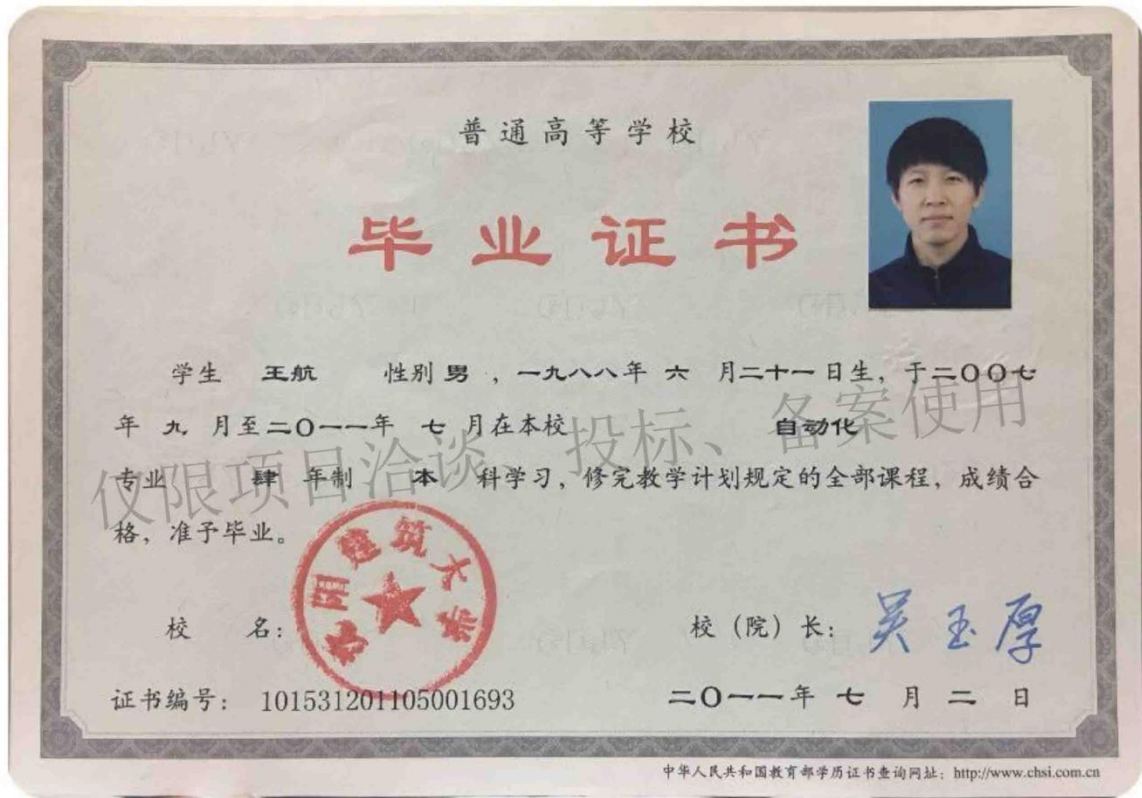 普通高等学校
毕业证书
学生 王航 性别 男 ,一九八八年 六 月二十一日生,于二〇〇七
年 九 月至二〇一一年 七 月在本校 自动化
专业 肆 年制 本 科学习,修完教学计划规定的全部课程,成绩合
格,准予毕业。
仅限项目洽谈、投标、备案使用
建筑大学
校 名:
校(院)长: 吴玉厚
证书编号: 101531201105001693
二〇一一年 七 月 二 日
中华人民共和国教育部学历证书查询网址: http://www.chsi.com.cn